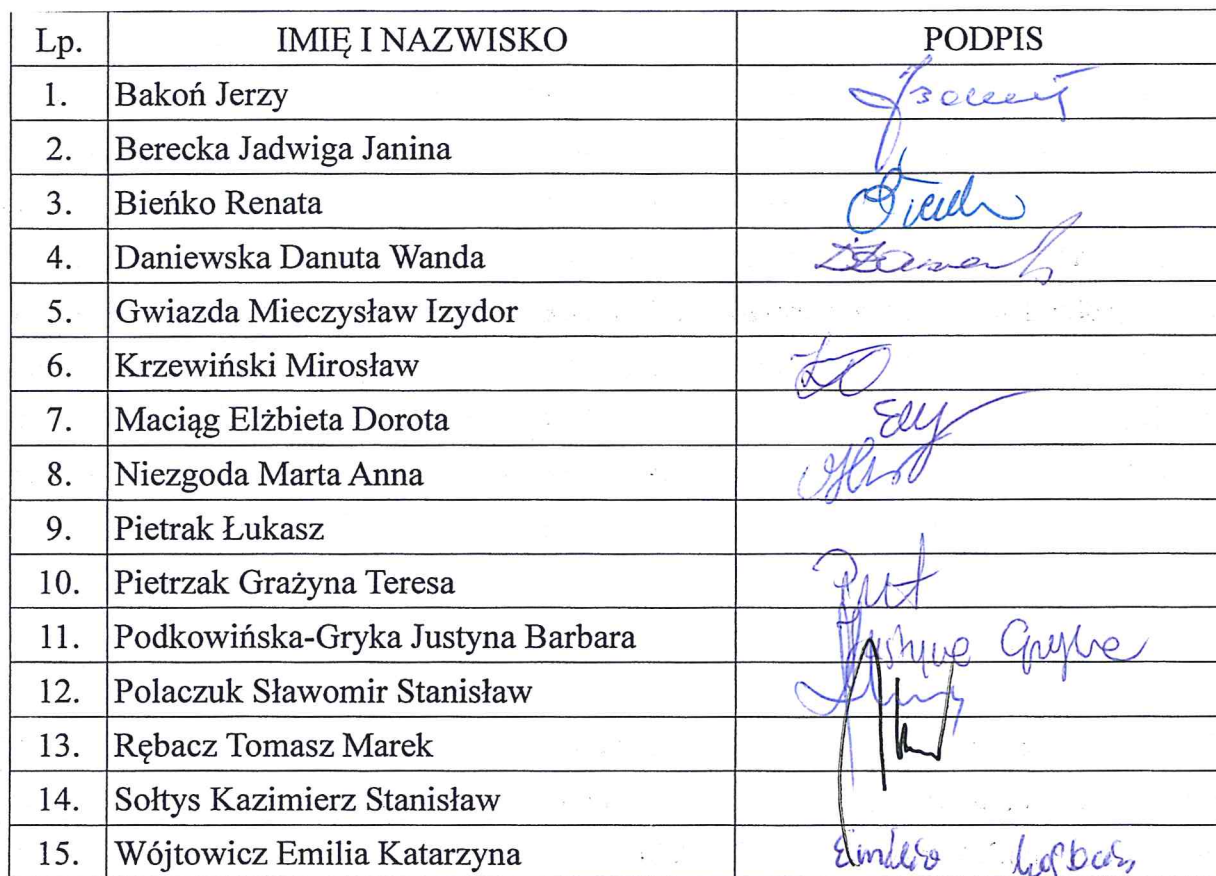 Lp. IMIĘ I NAZWISKO PODPIS
1. Bakoń Jerzy
2. Berecka Jadwiga Janina
3. Bieńko Renata
4. Daniewska Danuta Wanda
5. Gwiazda Mieczysław Izydor
6. Krzewiński Mirosław
7. Maciąg Elżbieta Dorota
8. Niezgoda Marta Anna
9. Pietrak Łukasz
10. Pietrzak Grażyna Teresa
11. Podkowińska-Gryka Justyna Barbara Justyna Gryka
12. Polaczuk Sławomir Stanisław
13. Rębacz Tomasz Marek
14. Sołtys Kazimierz Stanisław
15. Wójtowicz Emilia Katarzyna Emilia